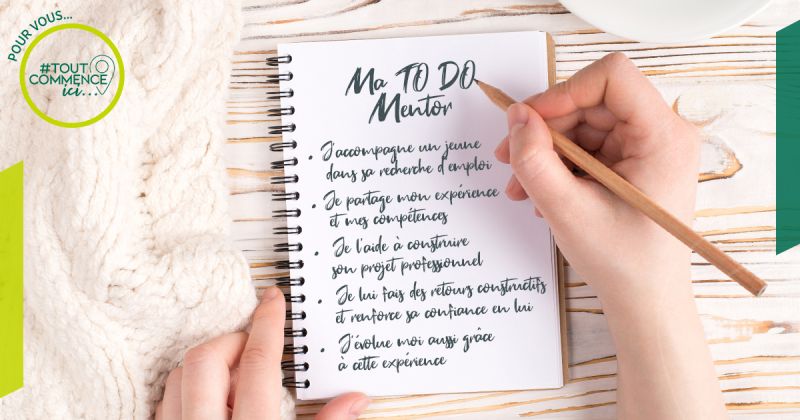 POUR VOUS...
#TOUT
COMMENCE
ici...
Ma TO DO
Mentor
• J'accompagne un jeune
dans sa recherche d'emploi
• Je partage mon expérience
et mes compétences
• Je l'aide à construire
son projet professionnel
• Je lui fais des retours constructifs
et renforce sa confiance en lui
• J'évolue moi aussi grâce
à cette expérience